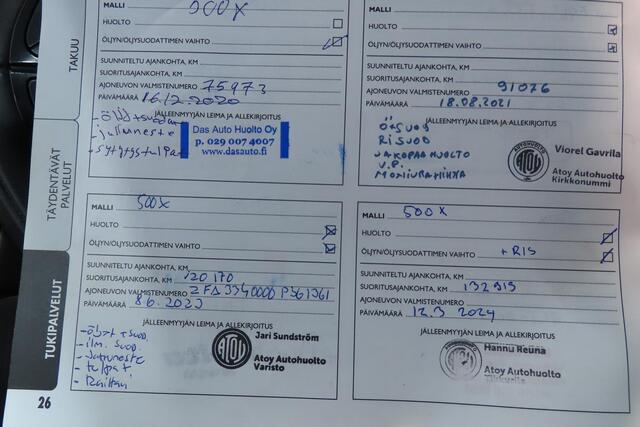 MALLI 500X
HUOLTO
ÖLJYN/ÖLJYSUODATTIMEN VAIHTO
SUUNNITELTU AJANKOHTA, KM
SUORITUSAJANKOHTA, KM
AJONEUVON VALMISTENUMERO 75973
PÄIVÄMÄÄRÄ 16.12.2020
JÄLLEENMYYJÄN LEIMA JA ALLEKIRJOITUS
jarruneste
Das Auto Huolto Oy
p. 029 007 4007
www.dasauto.fi
MALLI
HUOLTO
ÖLJYN/ÖLJYSUODATTIMEN VAIHTO
SUUNNITELTU AJANKOHTA, KM
SUORITUSAJANKOHTA, KM
AJONEUVON VALMISTENUMERO 91076
PÄIVÄMÄÄRÄ 18.08.2021
JÄLLEENMYYJÄN LEIMA JA ALLEKIRJOITUS
Ö+SUOD
RISUOD
JAKOPAAHUOLTO
V.P.
MONIURAHIHNA
ATOY
AUTOHUOLTO
Viorel Gavrila
Atoy Autohuolto
Kirkkonummi
MALLI 500X
HUOLTO
ÖLJYN/ÖLJYSUODATTIMEN VAIHTO
SUUNNITELTU AJANKOHTA, KM
SUORITUSAJANKOHTA, KM 120 170
AJONEUVON VALMISTENUMERO
PÄIVÄMÄÄRÄ 8.6.2023
JÄLLEENMYYJÄN LEIMA JA ALLEKIRJOITUS
- öljyt + suod.
- ilm. suod
- jarruneste
- tulpat
- Raitari
ATOY
Jari Sundström
Atoy Autohuolto
Varisto
MALLI 500X
HUOLTO
ÖLJYN/ÖLJYSUODATTIMEN VAIHTO + RIS
SUUNNITELTU AJANKOHTA, KM
SUORITUSAJANKOHTA, KM 132915
AJONEUVON VALMISTENUMERO
PÄIVÄMÄÄRÄ 12.3 2024
JÄLLEENMYYJÄN LEIMA JA ALLEKIRJOITUS
ATOY
Hannu Reuna
Atoy Autohuolto
Tikkurila
TAKUU
TÄYDENTÄVÄT
PALVELUT
TUKIPALVELUT
26